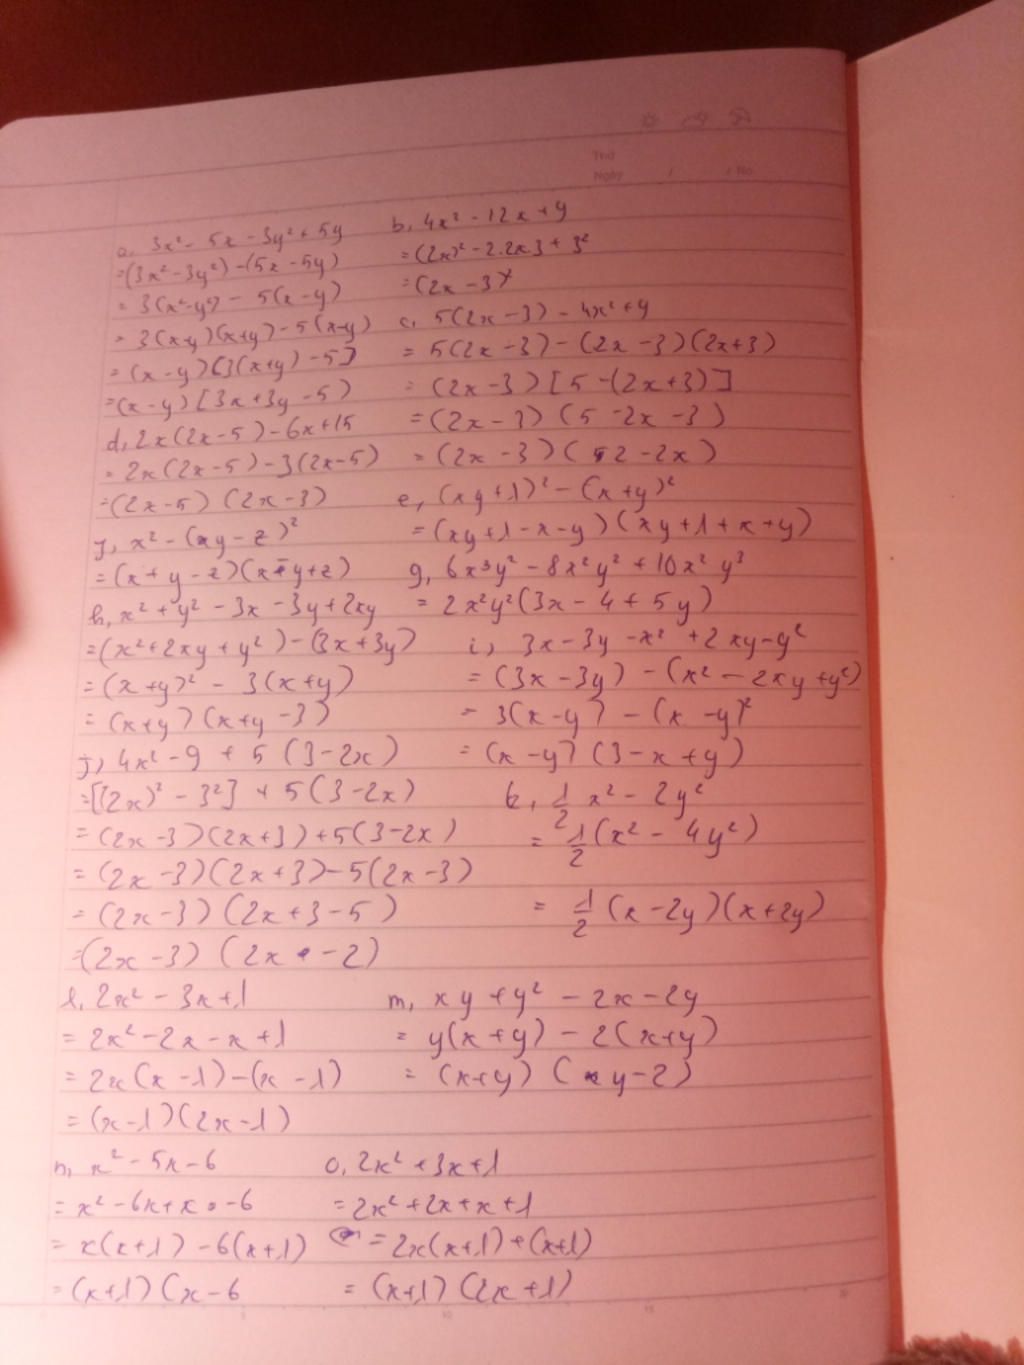 Thứ
Ngày / / No
a, 3x² - 5x - 3y² + 5y
= (3x² - 3y²) - (5x - 5y)
= 3(x² - y²) - 5(x - y)
= 3(x-y)(x+y) - 5(x-y)
= (x-y)[3(x+y) - 5]
= (x-y)[3x + 3y - 5)
b, 4x² - 12x + 9
= (2x)² - 2.2x3 + 3²
= (2x - 3)²
c, 5(2x - 3) - 4x² + 9
= 5(2x - 3) - (2x - 3)(2x+3)
= (2x - 3)[5 - (2x+3)]
= (2x - 3)(5 - 2x - 3)
= (2x - 3)(2 - 2x)
d, 2x(2x-5) - 6x + 15
= 2x(2x-5) - 3(2x-5)
= (2x-5)(2x-3)
e, (xy+1)² - (x+y)²
= (xy+1-x-y)(xy+1+x+y)
y, x² - (y - z)²
= (x+y-z)(x-y+z)
g, 6x³y² - 8x²y² + 10x²y³
= 2x²y²(3x - 4 + 5y)
h, x² + y² - 3x - 3y + 2xy
= (x² + 2xy + y²) - (3x + 3y)
= (x+y)² - 3(x+y)
= (x+y)(x+y-3)
i, 3x - 3y - x² + 2xy - y²
= (3x - 3y) - (x² - 2xy + y²)
= 3(x-y) - (x-y)²
= (x-y)(3-x+y)
j, 4x² - 9 + 5(3-2x)
= [(2x)² - 3²] + 5(3-2x)
= (2x-3)(2x+3) + 5(3-2x)
= (2x-3)(2x+3) - 5(2x-3)
= (2x-3)(2x+3-5)
= (2x-3)(2x - 2)
k, 1/2 x² - 2y²
= 1/2 (x² - 4y²)
= 1/2 (x-2y)(x+2y)
l, 2x² - 3x + 1
= 2x² - 2x - x + 1
= 2x(x-1) - (x-1)
= (x-1)(2x-1)
m, xy + y² - 2x - 2y
= y(x+y) - 2(x+y)
= (x+y)(y-2)
n, x² - 5x - 6
= x² - 6x + x - 6
= x(x+1) - 6(x+1)
= (x+1)(x-6
o, 2x² + 3x + 1
= 2x² + 2x + x + 1
= 2x(x+1) + (x+1)
= (x+1)(2x+1)
10 15 20